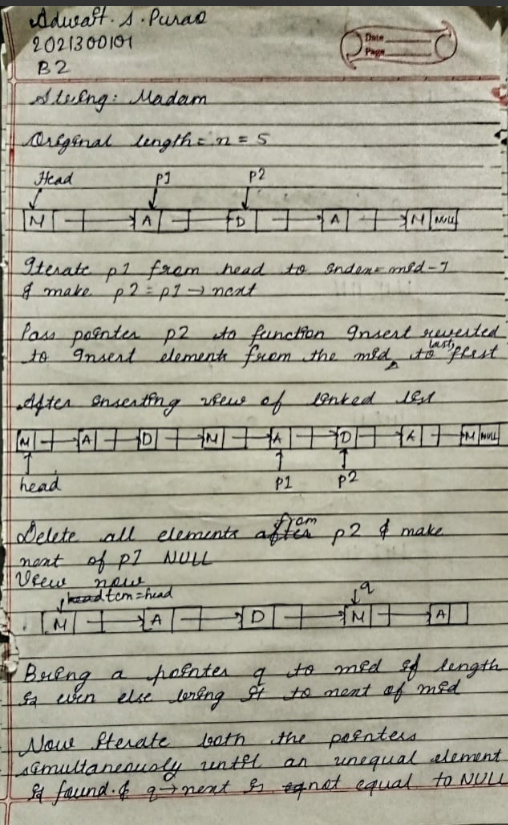 Adwait .S. Purao
2021300101
B2
Date
Page
String: Madam
Original length = n = 5
Head P1 P2
M A D A M NULL
Iterate p1 from head to index=mid-1
& make p2 = p1 → next
Pass pointer p2 to function Insert reverted
to insert elements from the mid to last first
After inserting view of linked list
M A D M A D A M NULL
head P1 P2
Delete all elements from p2 & make
next of p1 NULL
View now
tem=head q
M A D M A
Bring a pointer q to mid if length
is even else bring it to next of mid
Now iterate both the pointers
simultaneously until an unequal element
is found & q→next is not equal to NULL